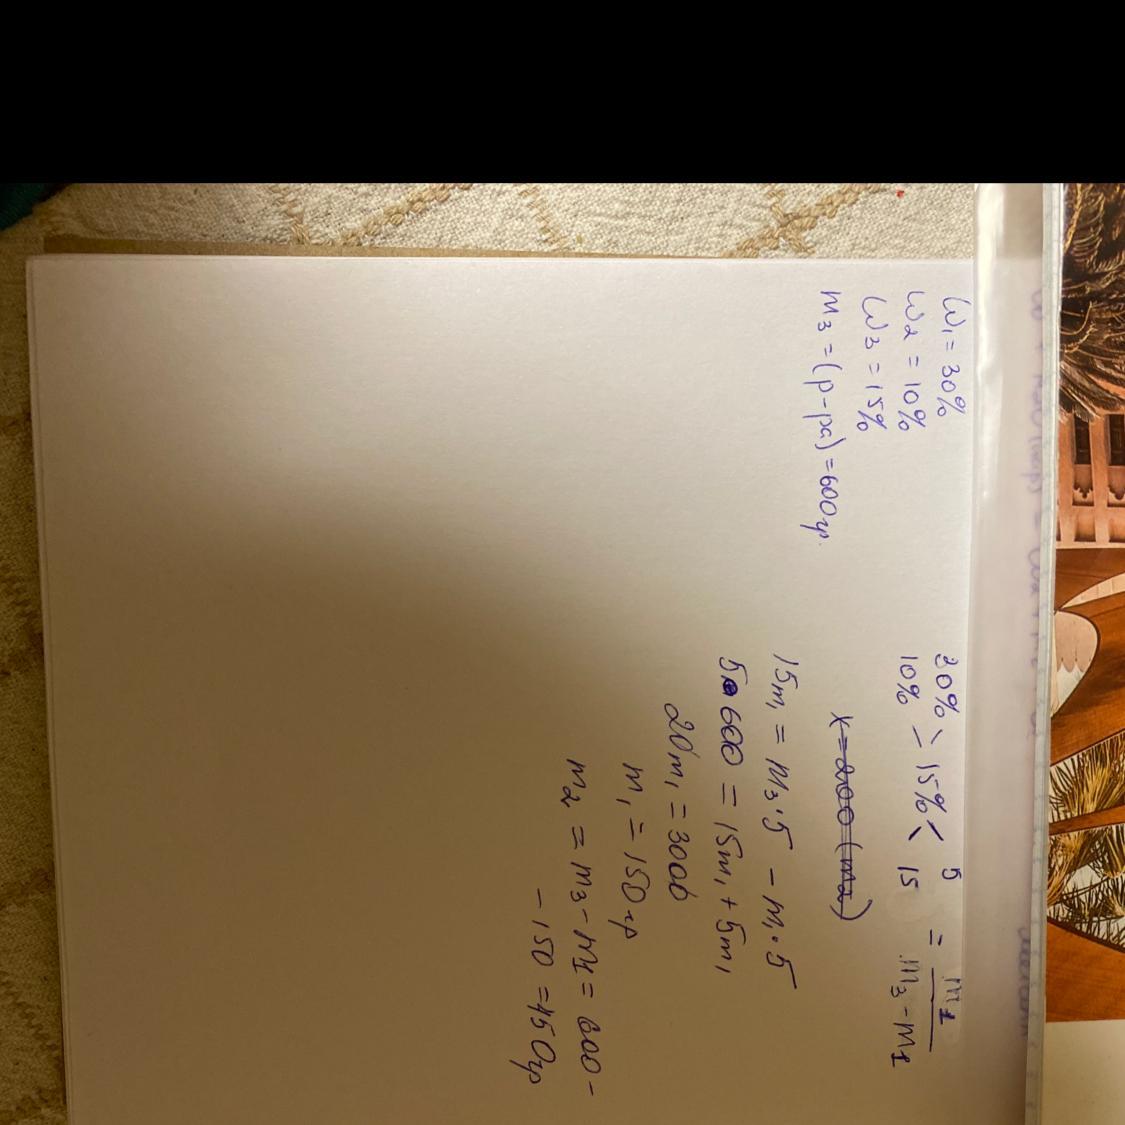 ω₁ = 30%
ω₂ = 10%
ω₃ = 15%
m₃ = (р-ра) = 600гр.
30% \ 15% / 5 = m₁
10% / \ 15 m₃ - m₁
x = 200 (m₂)
15m₁ = m₃·5 - m₁·5
5·600 = 15m₁ + 5m₁
20m₁ = 3000
m₁ = 150гр
m₂ = m₃ - m₁ = 600 -
- 150 = 450гр